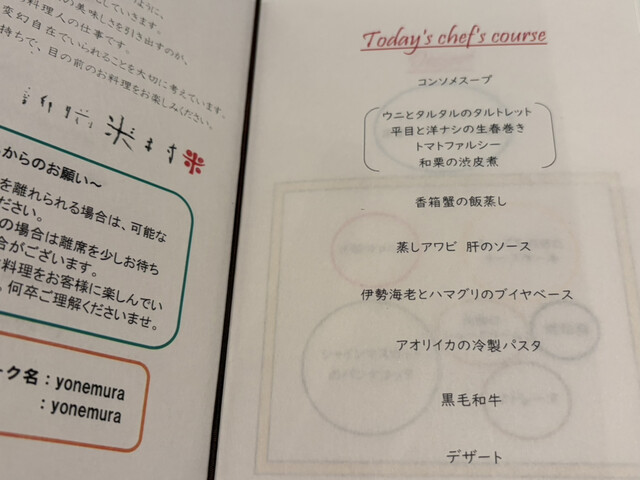 の美味しさを引き出すのか、
料理人の仕事です。
変幻自在でいられることを大切に考えています。
持ちで、目の前のお料理をお楽しみください。
米
からのお願い~
を離れられる場合は、可能な
ださい。
の場合は離席を少しお待ち
合がございます。
料理をお客様に楽しんでい
。何卒ご理解くださいませ。
ーク名：yonemura
：yonemura
Today's chef's course
コンソメスープ
ウニとタルタルのタルトレット
平目と洋ナシの生春巻き
トマトファルシー
和栗の渋皮煮
香箱蟹の飯蒸し
蒸しアワビ 肝のソース
伊勢海老とハマグリのブイヤベース
アオリイカの冷製パスタ
黒毛和牛
デザート